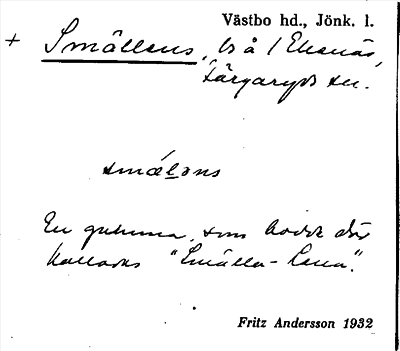 Västbo hd., Jönk. l.
+ Smällens, bs å / Ekenäs,
Färgaryds sn.
smälens
En gumma, som bodde där
kallades "Smälla-Lena".
Fritz Andersson 1932